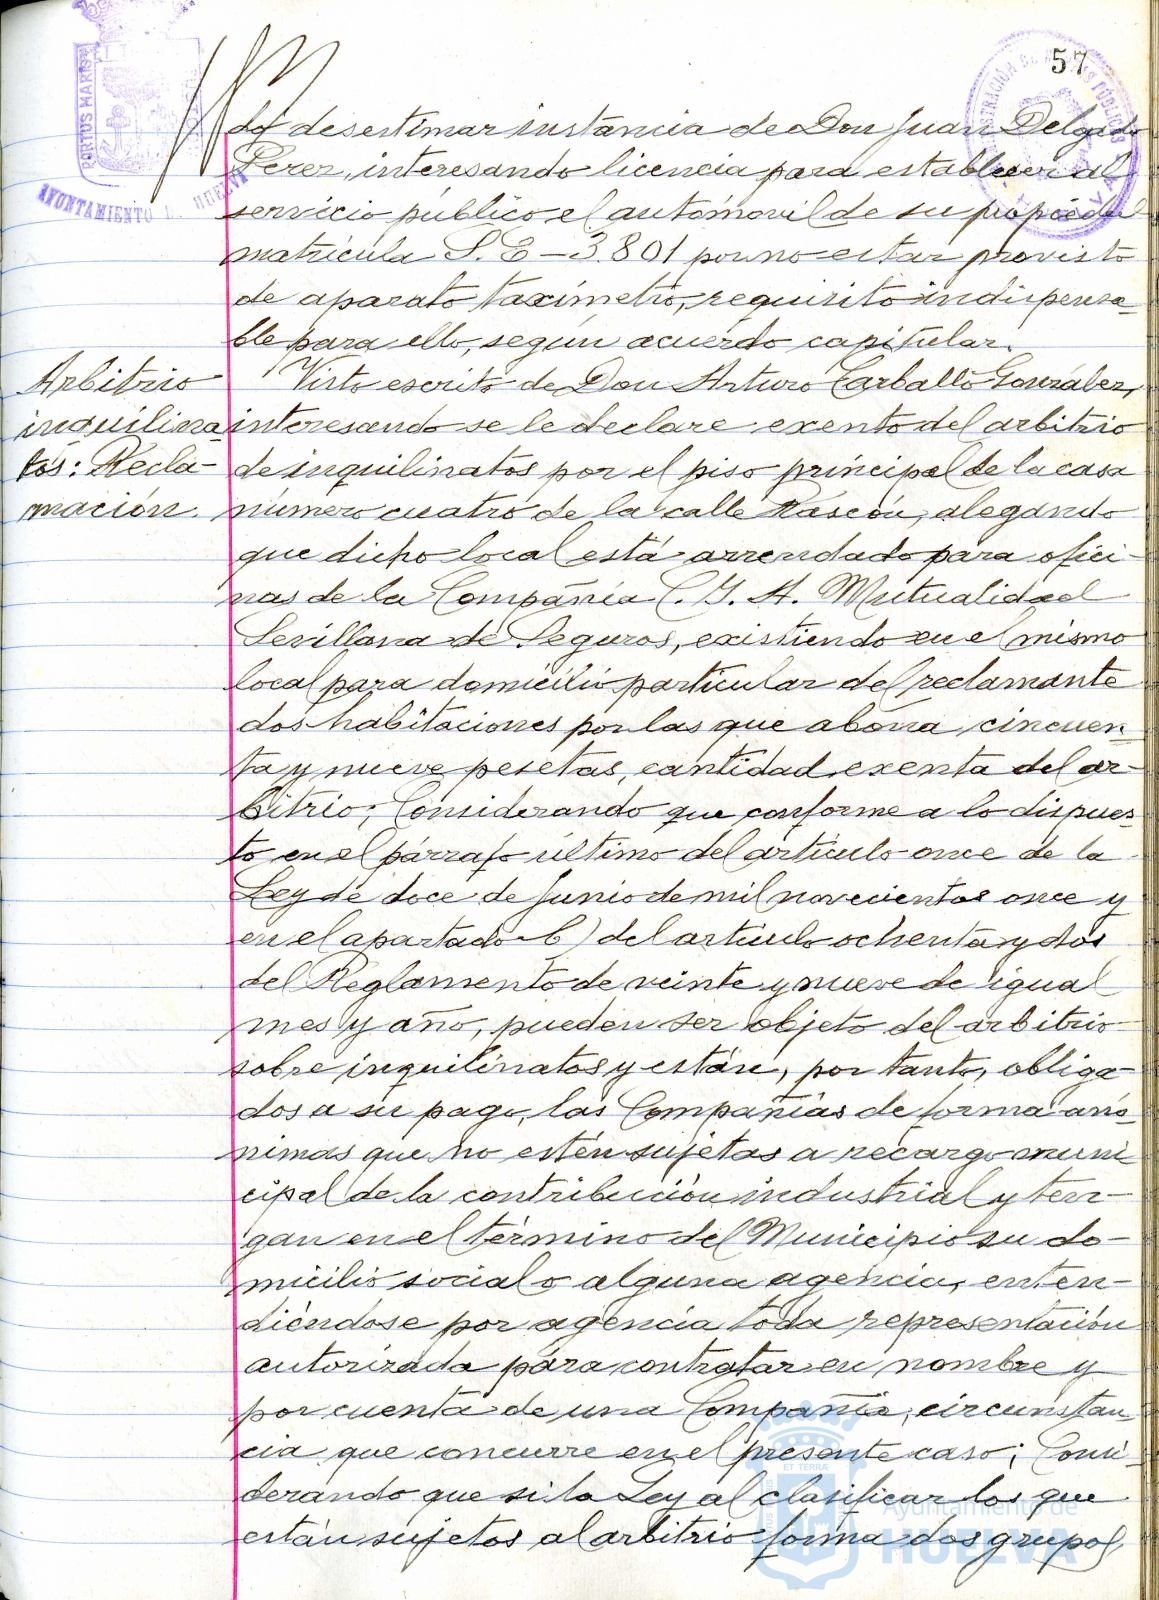 57
PORTUS MARIS
AYUNTAMIENTO DE HUELVA
do desestimar instancia de Don Juan Delgado
Perez, interesando licencia para establecer al
servicio público el automovil de su propiedad
matrícula S.E-3.801 por no estar provisto
de aparato taxímetro, requisito indispensa-
ble para ello, según acuerdo capitular.
Arbitrio
inquilina-
tos: Recla-
mación.
Visto escrito de Don Arturo Carballo González,
interesando se le declare exento del arbitrio
de inquilinatos por el piso principal de la casa
número cuatro de la calle Rascón, alegando
que dicho local está arrendado para ofici-
nas de la Compañía C.G.A. Mutualidad
Sevillana de Seguros, existiendo en el mismo
local para domicilio particular del reclamante
dos habitaciones por las que abona cincuen-
ta y nueve pesetas, cantidad exenta del ar-
bitrio; Considerando que conforme a lo dispues-
to en el párrafo último del artículo once de la
Ley de doce de Junio de mil novecientos once y
en el apartado b) del artículo ochenta y dos
del Reglamento de veinte y nueve de igual
mes y año, pueden ser objeto del arbitrio
sobre inquilinatos y están, por tanto, obliga-
dos a su pago, las Compañías de forma anó-
nimas que no estén sujetas a recargo muni
cipal de la contribución industrial y ten-
gan en el término del Municipio su do-
micilio social o alguna agencia, enten-
diéndose por agencia toda representación
autorizada para contratar en nombre y
por cuenta de una Compañia, circunstan-
cia que concurre en el presente caso; Consi-
derando que si la Ley al clasificar los que
están sujetos al arbitrio forma dos grupos,
Ayuntamiento de
HUELVA